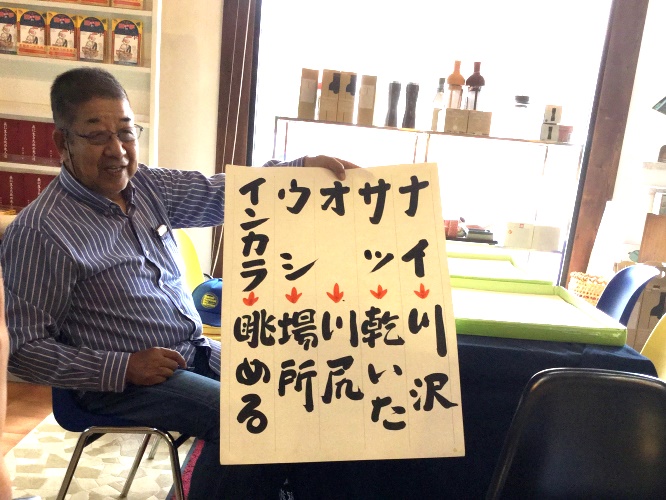 ナイ➡川沢
サッ➡乾いた
オ➡川尻
ウシ➡場所
インカラ➡眺める